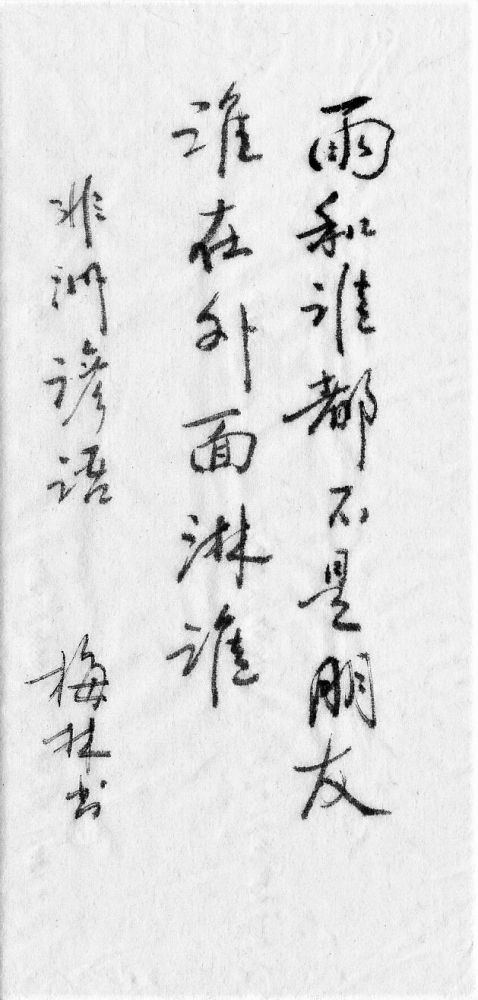 雨和谁都不是朋友
谁在外面淋谁
非洲谚语 梅林书